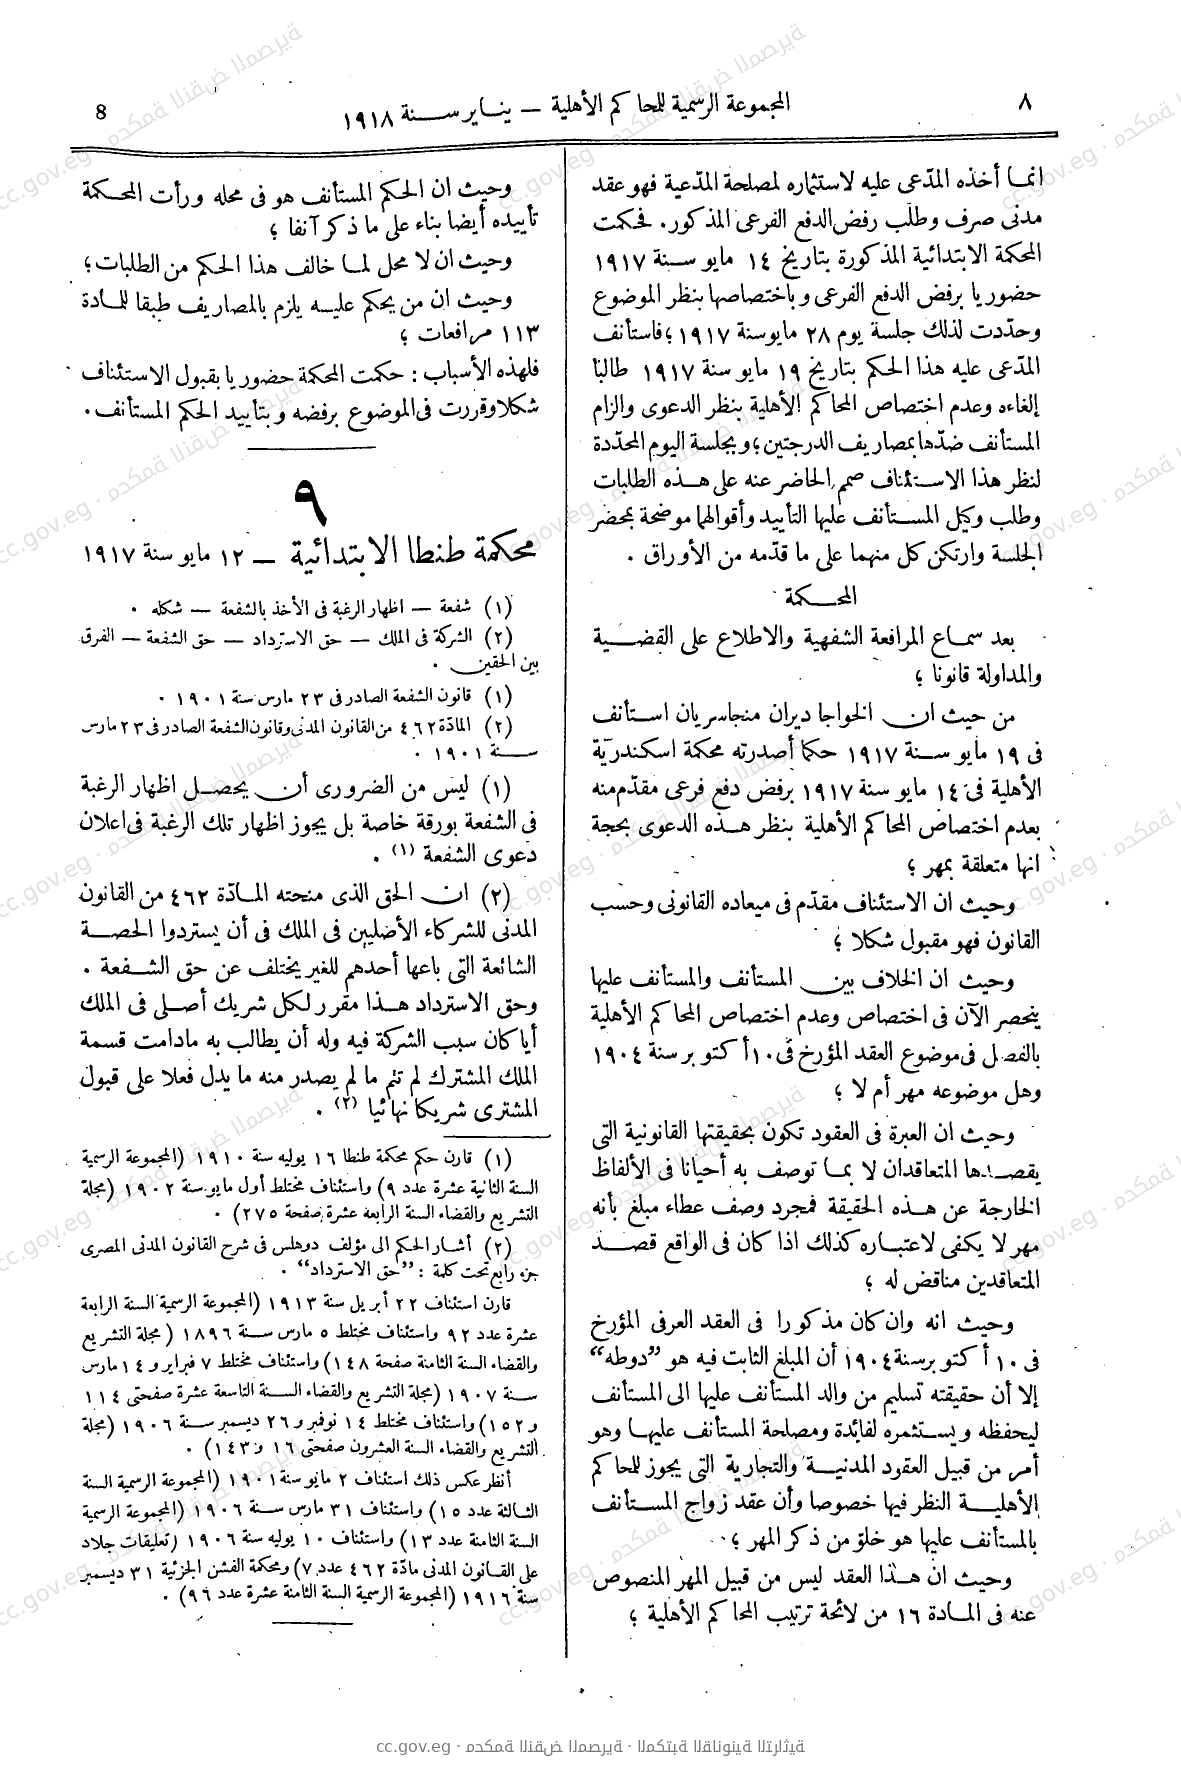 ٨
المجموعة الرسمية للمحاكم الأهلية — يناير سنة ١٩١٨
8
انما أخذه المدّعى عليه لاستثماره لمصلحة المدّعية فهو عقد
مدنى صرف وطلب رفض الدفع الفرعى المذكور. فحكمت
المحكمة الابتدائية المذكورة بتاريخ ١٤ مايو سنة ١٩١٧
حضوريا برفض الدفع الفرعى وباختصاصها بنظر الموضوع
وحدّدت لذلك جلسة يوم ٢٨ مايو سنة ١٩١٧؛ فاستأنف
المدّعى عليه هذا الحكم بتاريخ ١٩ مايو سنة ١٩١٧ طالبا
إلغاءه وعدم اختصاص المحاكم الأهلية بنظر الدعوى والزام
المستأنف ضدّها بمصاريف الدرجتين؛ وبجلسة اليوم المحدّدة
لنظر هذا الاستئناف صمم الحاضر عنه على هذه الطلبات
وطلب وكيل المستأنف عليها التأييد وأقوالهما موضحة بمحضر
الجلسة وارتكن كل منهما على ما قدّمه من الأوراق .
المحكمة
بعد سماع المرافعة الشفهية والاطلاع على القضية
والمداولة قانونا ؛
من حيث ان الخواجا ديران منجاسريان استأنف
فى ١٩ مايو سنة ١٩١٧ حكما أصدرته محكمة اسكندريّة
الأهلية فى ١٤ مايو سنة ١٩١٧ برفض دفع فرعى مقدّم منه
بعدم اختصاص المحاكم الأهلية بنظر هذه الدعوى بحجة
انها متعلقة بمهر ؛
وحيث ان الاستئناف مقدّم فى ميعاده القانونى وحسب
القانون فهو مقبول شكلا ؛
وحيث ان الخلاف بين المستأنف والمستأنف عليها
ينحصر الآن فى اختصاص وعدم اختصاص المحاكم الأهلية
بالفصل فى موضوع العقد المؤرخ فى ١٠ أكتوبر سنة ١٩٠٤
وهل موضوعه مهر أم لا ؛
وحيث ان العبرة فى العقود تكون بحقيقتها القانونية التى
يقصدها المتعاقدان لا بما توصف به أحيانا فى الألفاظ
الخارجة عن هذه الحقيقة فمجرد وصف عطاء مبلغ بأنه
مهر لا يكفى لاعتباره كذلك اذا كان فى الواقع قصد
المتعاقدين مناقض له ؛
وحيث انه وان كان مذكورا فى العقد العرفى المؤرخ
فى ١٠ أكتوبر سنة ١٩٠٤ أن المبلغ الثابت فيه هو ”دوطه“
إلا أن حقيقته تسليم من والد المستأنف عليها الى المستأنف
ليحفظه ويستثمره لفائدة ومصلحة المستأنف عليها وهو
أمر من قبيل العقود المدنية والتجارية التى يجوز للمحاكم
الأهلية النظر فيها خصوصا وأن عقد زواج المستأنف
بالمستأنف عليها هو خلو من ذكر المهر ؛
وحيث ان هذا العقد ليس من قبيل المهر المنصوص
عنه فى المادة ١٦ من لائحة ترتيب المحاكم الأهلية ؛
وحيث ان الحكم المستأنف هو فى محله ورأت المحكمة
تأييده أيضا بناء على ما ذكر آنفا ؛
وحيث ان لا محل لما خالف هذا الحكم من الطلبات ؛
وحيث ان من يحكم عليه يلزم بالمصاريف طبقا للمادة
١١٣ مرافعات ؛
فلهذه الأسباب : حكمت المحكمة حضوريا بقبول الاستئناف
شكلا وقررت فى الموضوع برفضه وبتأييد الحكم المستأنف.
٩
محكمة طنطا الابتدائية — ١٢ مايو سنة ١٩١٧
(١) شفعة — اظهار الرغبة فى الأخذ بالشفعة — شكله .
(٢) الشركة فى الملك — حق الاسترداد — حق الشفعة — الفرق
بين الحقين .
(١) قانون الشفعة الصادر فى ٢٣ مارس سنة ١٩٠١ .
(٢) المادّة ٤٦٢ من القانون المدنى وقانون الشفعة الصادر فى ٢٣ مارس
سنة ١٩٠١ .
(١) ليس من الضرورى أن يحصل اظهار الرغبة
فى الشفعة بورقة خاصة بل يجوز اظهار تلك الرغبة فى اعلان
دعوى الشفعة (١) .
(٢) ان الحق الذى منحته المادّة ٤٦٢ من القانون
المدنى للشركاء الأصليين فى الملك فى أن يستردوا الحصة
الشائعة التى باعها أحدهم للغير يختلف عن حق الشفعة .
وحق الاسترداد هذا مقرر لكل شريك أصلى فى الملك
أيا كان سبب الشركة فيه وله أن يطالب به مادامت قسمة
الملك المشترك لم تتم ما لم يصدر منه ما يدل فعلا على قبول
المشترى شريكا نهائيا (٢) .
(١) قارن حكم محكمة طنطا ١٦ يوليه سنة ١٩١٠ (المجموعة الرسمية
السنة الثانية عشرة عدد ٩) واستئناف مختلط أول مايو سنة ١٩٠٢ (مجلة
التشريع والقضاء السنة الرابعة عشرة صفحة ٢٧٥) .
(٢) أشار الحكم الى مؤلف دوهلس فى شرح القانون المدنى المصرى
جزء رابع تحت كلمة : ”حق الاسترداد“ .
قارن استئناف ٢٢ أبريل سنة ١٩١٣ (المجموعة الرسمية السنة الرابعة
عشرة عدد ٩٢ واستئناف مختلط ٥ مارس سنة ١٨٩٦ (مجلة التشريع
والقضاء السنة الثامنة صفحة ١٤٨) واستئناف مختلط ٧ فبراير و ١٤ مارس
سنة ١٩٠٧ (مجلة التشريع والقضاء السنة التاسعة عشرة صفحتى ١١٤
و ١٥٢) واستئناف مختلط ١٤ نوفمبر و ٢٦ ديسمبر سنة ١٩٠٦ (مجلة
التشريع والقضاء السنة العشرون صفحتى ١٦ و ١٤٣) .
أنظر عكس ذلك استئناف ٢ مايو سنة ١٩٠١ (المجموعة الرسمية السنة
الثالثة عدد ١٥) واستئناف ٣١ مارس سنة ١٩٠٦ (المجموعة الرسمية
السنة الثامنة عدد ١٣) واستئناف ١٠ يوليه سنة ١٩٠٦ (تعليقات جلاد
على القانون المدنى مادّة ٤٦٢ عدد ٧) ومحكمة الفشن الجزئية ٣١ ديسمبر
سنة ١٩١٦ (المجموعة الرسمية السنة الثامنة عشرة عدد ٩٦) .
cc.gov.eg · محكمة النقض المصرية · المكتبة القانونية التراثية